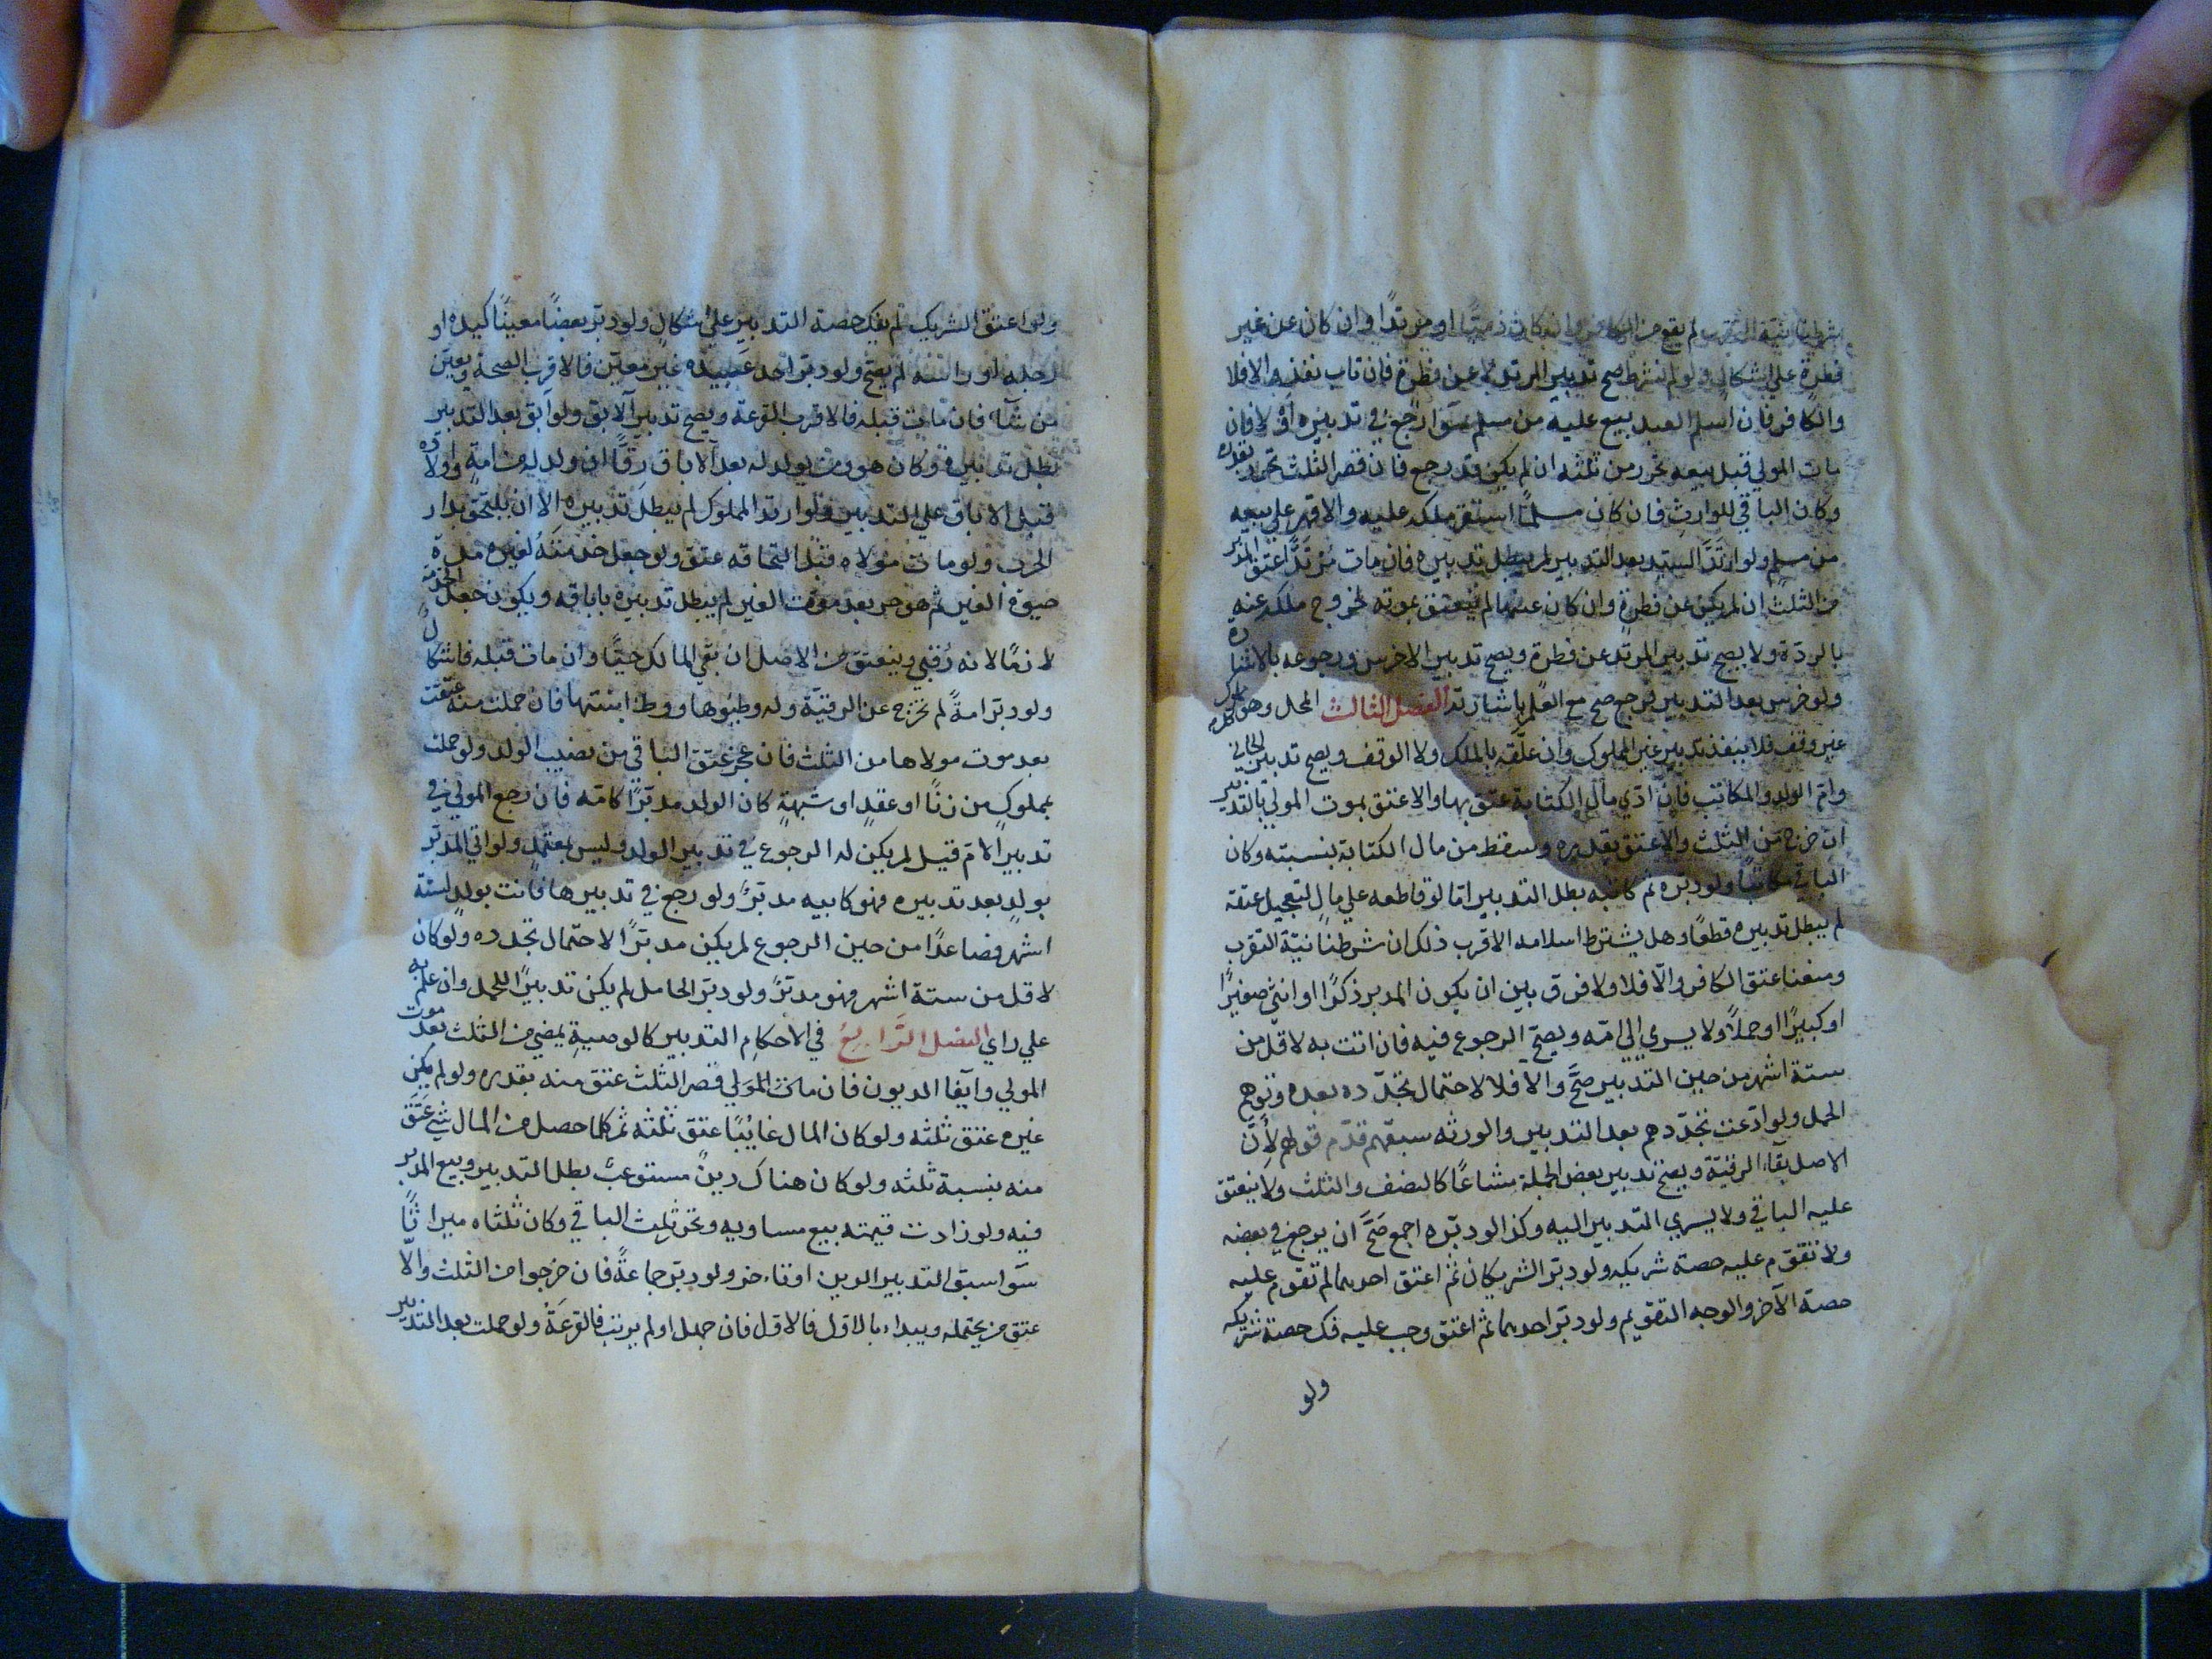 شرطنا نيّة التقرب لم يقع من الكافر وان كان ذميًّا او مرتدًا وان كان عن غير
فطرة علي اشكال ولو لم نشترط صح تدبير المرتد لا عن فطرة فان تاب نفذ والا فلا
والكافر فان اسلم العبد بيع عليه من مسلم سوا رجع في تدبيره او لا فان
مات المولي قبل بيعه تحرر من ثلثه ان لم يكن قد رجع فان قصر الثلث تحرر بقدره
وكان الباقي للوارث فان كان مسلمًا استقر ملكه عليه والا قهر علي بيعه
من مسلم ولو ارتدَّ السيد بعد التدبير لم يبطل تدبيره فان مات مُرْتدًّا عتق المدبر
من الثلث ان لم يكن عن فطرة وان كان عنها لم ينعتق بموته لخروج ملكه عنه
بالردّة ولا يصح تدبير المرتد عن فطرة ويصح تدبير الاخرس ورجوعه بالاشارة
ولو خرس بعد التدبير فرجع صح مع العلم باشارته الفصل الثالث المحل وهو كل مملوك
غير وقف فلا ينفذ تدبير غير المملوك وان علّقه بالملك ولا الوقف ويصح تدبير الجاني
وام الولد والمكاتب فان ادّي مال الكتابة عتق بها والا عتق بموت المولي بالتدبير
ان خرج من الثلث والا عتق بقدره وسقط من مال الكتابة بنسبته وكان
الباقي مكاتبًا ولو دبّره ثم كاتبه بطل التدبير اما لو قاطعه علي مالٍ لتعجيل عتقه
لم يبطل تدبيره قطعًا وهل يشترط اسلامه الاقرب ذلك ان شرطنا نيّة التقرب
ومنعنا عتق الكافر والّا فلا ولا فرق بين ان يكون المدبر ذكرًا او انثي صغيرًا
او كبيرًا او حملًا ولا يسري الي امّه ويصحّ الرجوع فيه فان اتت به لاقل من
ستة اشهر من حين التدبير صحَّ والّا فلا لاحتمال تجدّده بعده وتوهم
الحمل ولو ادّعت تجدّدهم بعد التدبير والورثه سبقهم قدّم قولهم لأنّ
الاصل بقاء الرقيّة ويصح تدبير بعض الجملة مشاعًا كالنصف والثلث ولا ينعتق
عليه الباقي ولا يسري التدبير اليه وكذا لو دبّره اجمع صَحَّ ان يرجع في بعضه
ولا تقوّم عليه حصة شريكه ولو دبّر الشريكان ثم اعتق احدهما لم تقوم عليه
حصة الآخر والوجه التقويم ولو دبّر احدهما ثم اعتق وجب عليه فك حصة شريكه
ولو
ولو اعتق الشريك لم يفك حصة التدبير علي اشكال ولو دبّر بعضًا معينًا كيده او
رجله او راسه لم يصح ولو دبّر احد عبيده غير معين فالاقرب الصحة ويعيّن
من شآء فان مات قبله فالاقرب القرعة ويصح تدبير الآبق ولو ابق بعد التدبير
بطل تدبيره وكان هو ومن يولد له بعد الاباق رقًّا ان ولد له من امةٍ واولاده
قبل الاباق علي التدبير ولو ارتد المملوك لم يبطل تدبيره الا ان يلتحق بدار
الحرب ولو مات مولاه قبل التحاقه عتق ولو جعل خدمتَهُ لغيره مدة
حيوة الغير ثم هو حر بعد موت الغير لم يبطل تدبيره باباقه ويكون جعل الخدمة
لازمًا لانه رُقبي وينعتق من الاصل ان بقي المالك حيًّا وان مات قبله فاشكال
ولو دبّر امةً لم تخرج عن الرقيّة وله وطيُوها ووطء ابنتها فان حملت منه عتقت
بعد موت مولاها من الثلث فان عجز عتق الباقي من نصيب الولد ولو حملت
بمملوكٍ من زنًا او عقدٍ او شبهةٍ كان الولد مدبّرًا كامّه فان رجع المولي في
تدبير الامّ قيل لم يكن له الرجوع في تدبير الولد وليس بمعتمد ولو اتي المدبّر
بولدٍ بعد تدبيره فهو كابيه مدبّرٌ ولو رجع في تدبيرها فاتت بولدٍ لستة
اشهر فصاعدًا من حين الرجوع لم يكن مدبّرًا لاحتمال تجدده ولو كان
لاقل من ستة اشهر فهو مدبّرٌ ولو دبّر الحامل لم يكن تدبيرًا للحمل وان علم به
علي راي الفصل الرَّابعُ في الاحكام التدبير كالوصيةِ يمضي من الثلث بعد موت
المولي وآيفا الديون فان مات المَولي قصر الثلث عتق منه بقدره ولو لم يكن
غيره عتق ثلثه ولو كان المال غايبًا عتق ثلثه ثم كلما حصل من المال شي عتق
منه بنسبة ثلثه ولو كان هناك دينٌ مستوعبٌ بطل التدبير وبيع المدبر
فيه ولو زادت قيمته بيع مساويه وتحرر ثلث الباقي وكان ثلثاه ميراثًا
سَوا سبق التدبير الدين او تاخر ولو دبّر جماعةً فان خرجوا من الثلث والّا
عتق من يحتمله ويبداء بالاول فالاول فان جهل او لم يرتب فالقرعَةُ ولو حملت بعد التدبير